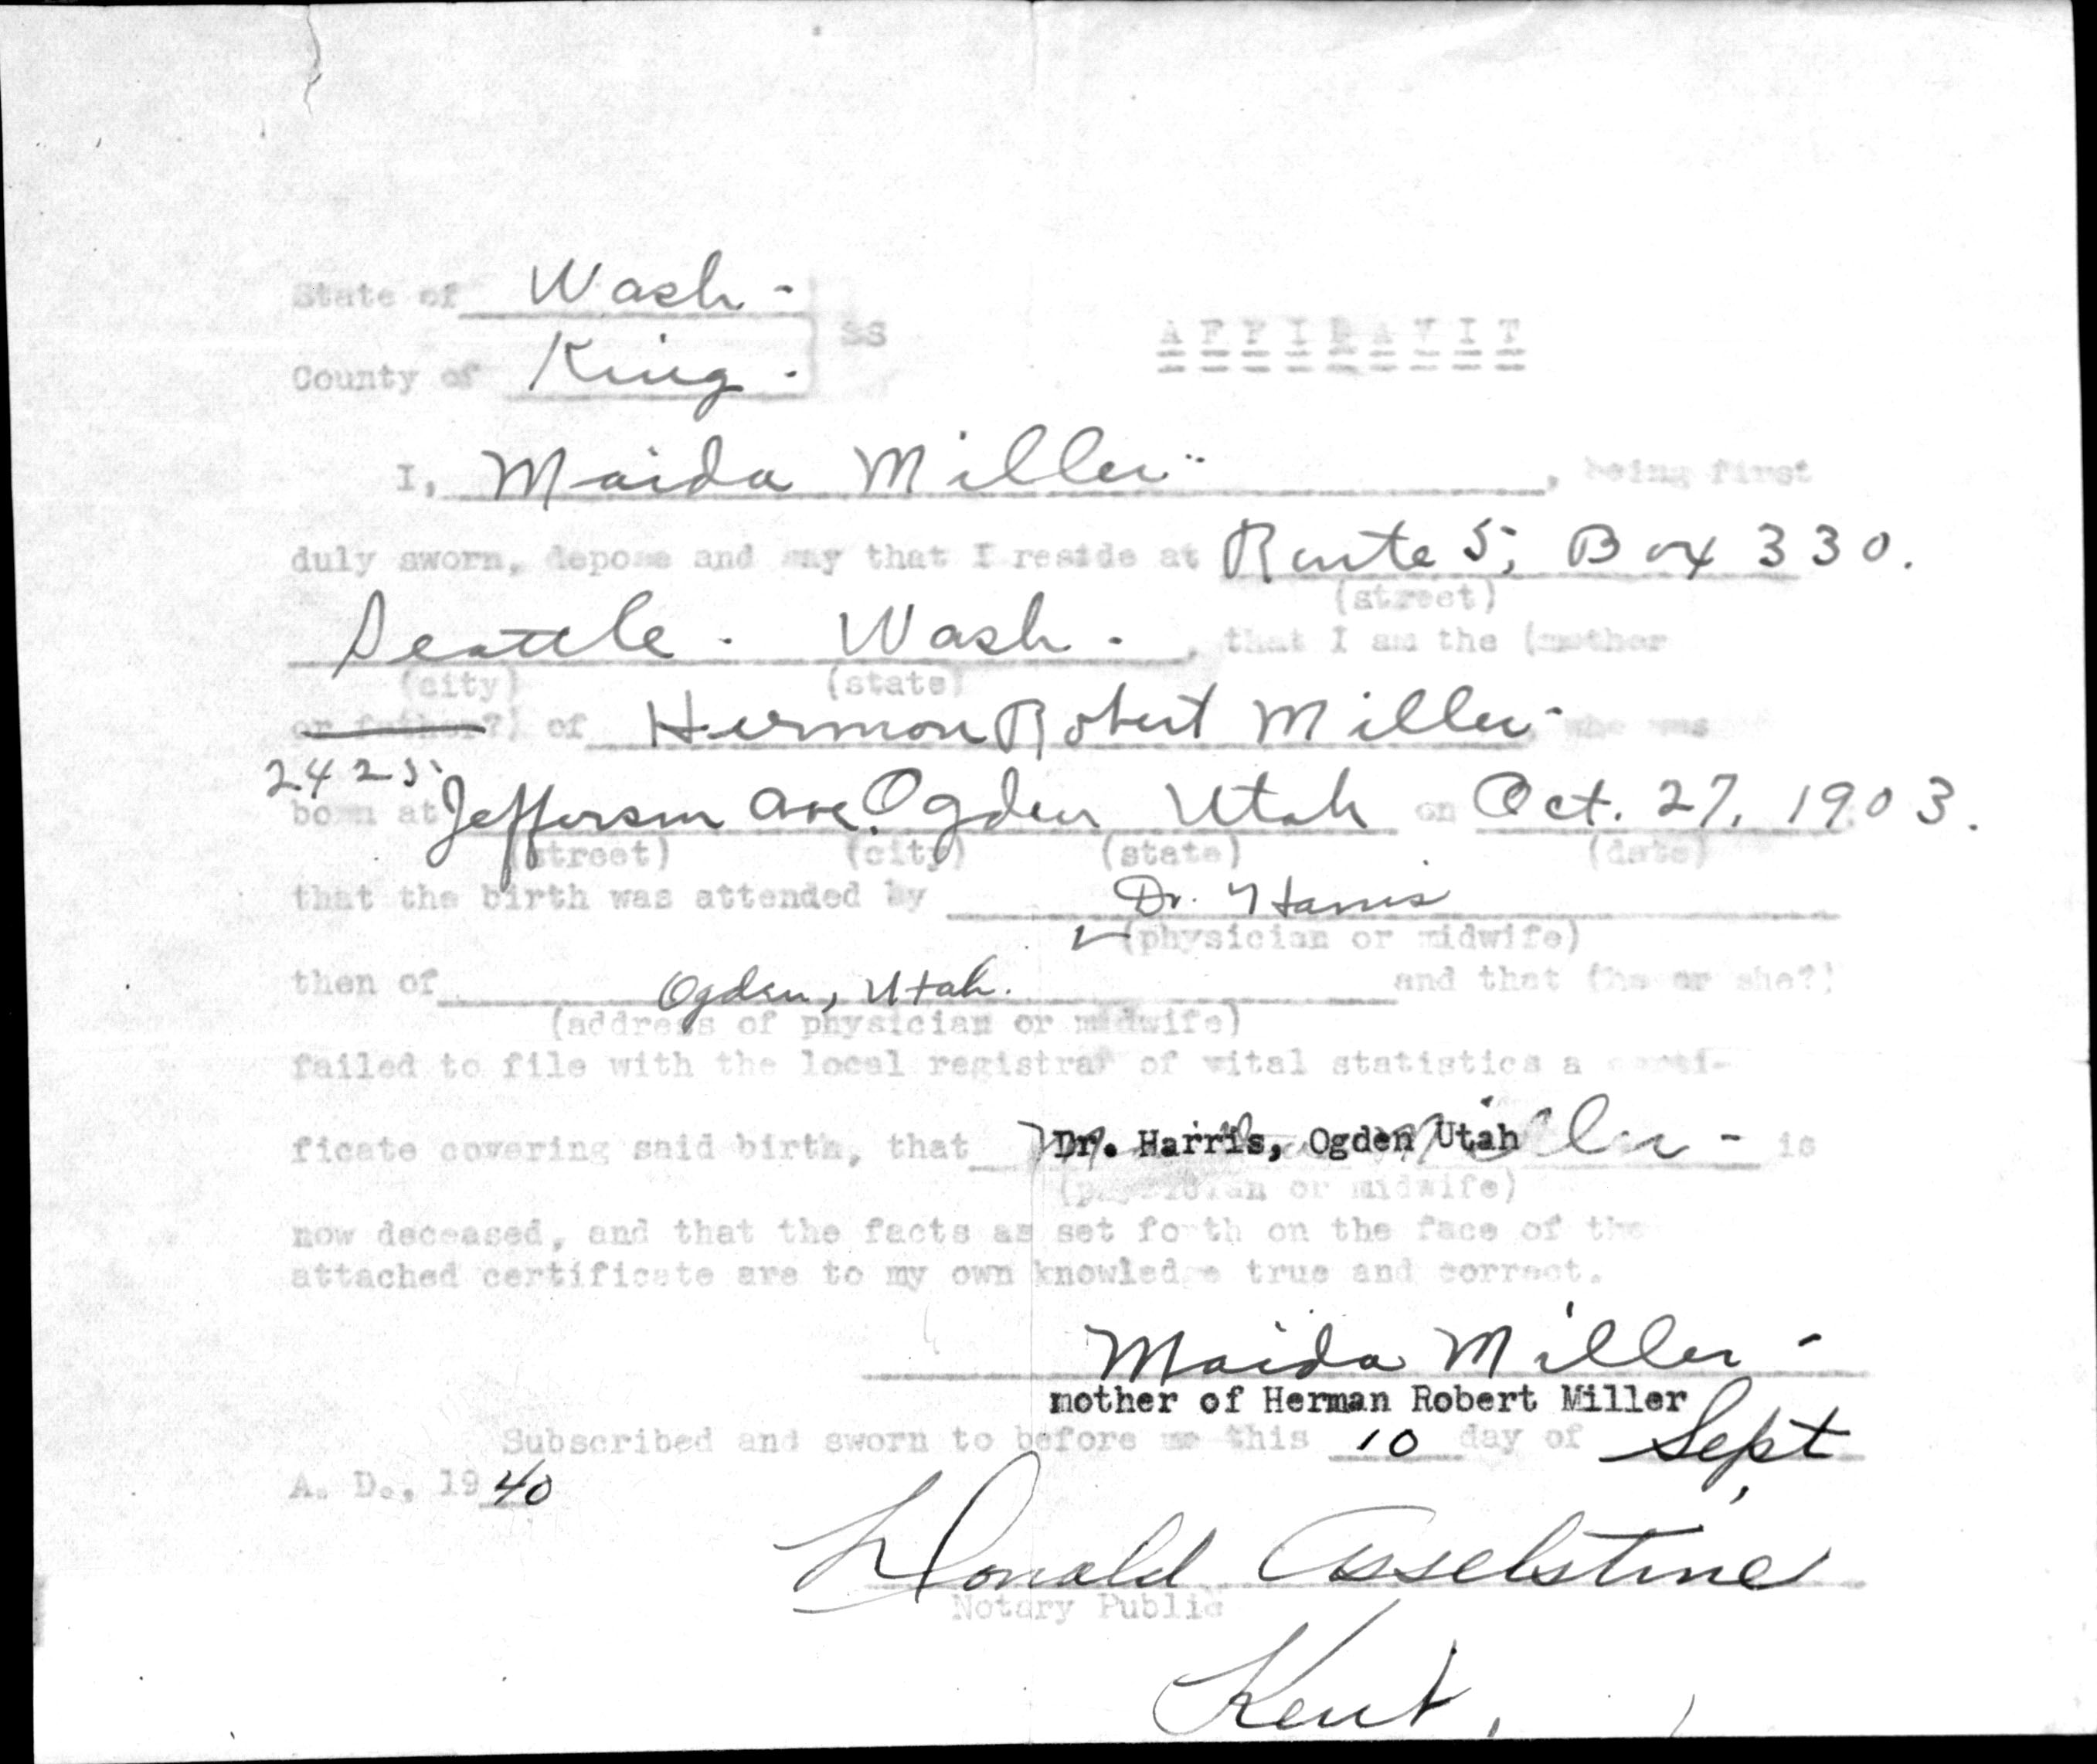 State of Wash -
SS
AFFIDAVIT
County of King.
I, Maida Miller , being first
duly sworn, depose and say that I reside at Route 5, Box 330.
(street)
Seattle. Wash. , that I am the (mother
(city) (state)
or father?) of Hermon Robert Miller - who was
2425
born at Jefferson Ave. Ogden Utah on Oct. 27, 1903.
(street) (city) (state) (date)
that the birth was attended by Dr. Harris
(physician or midwife)
then of Ogden, Utah. and that (he or she?)
(address of physician or midwife)
failed to file with the local registrar of vital statistics a certi-
ficate covering said birth, that Dr. Harris, Ogden Utah is
(physician or midwife)
now deceased, and that the facts as set forth on the face of the
attached certificate are to my own knowledge true and correct.
Maida Miller -
mother of Herman Robert Miller
Subscribed and sworn to before me this 10 day of Sept
A. D., 1940
Donald Asselstine
Notary Public
Kent,